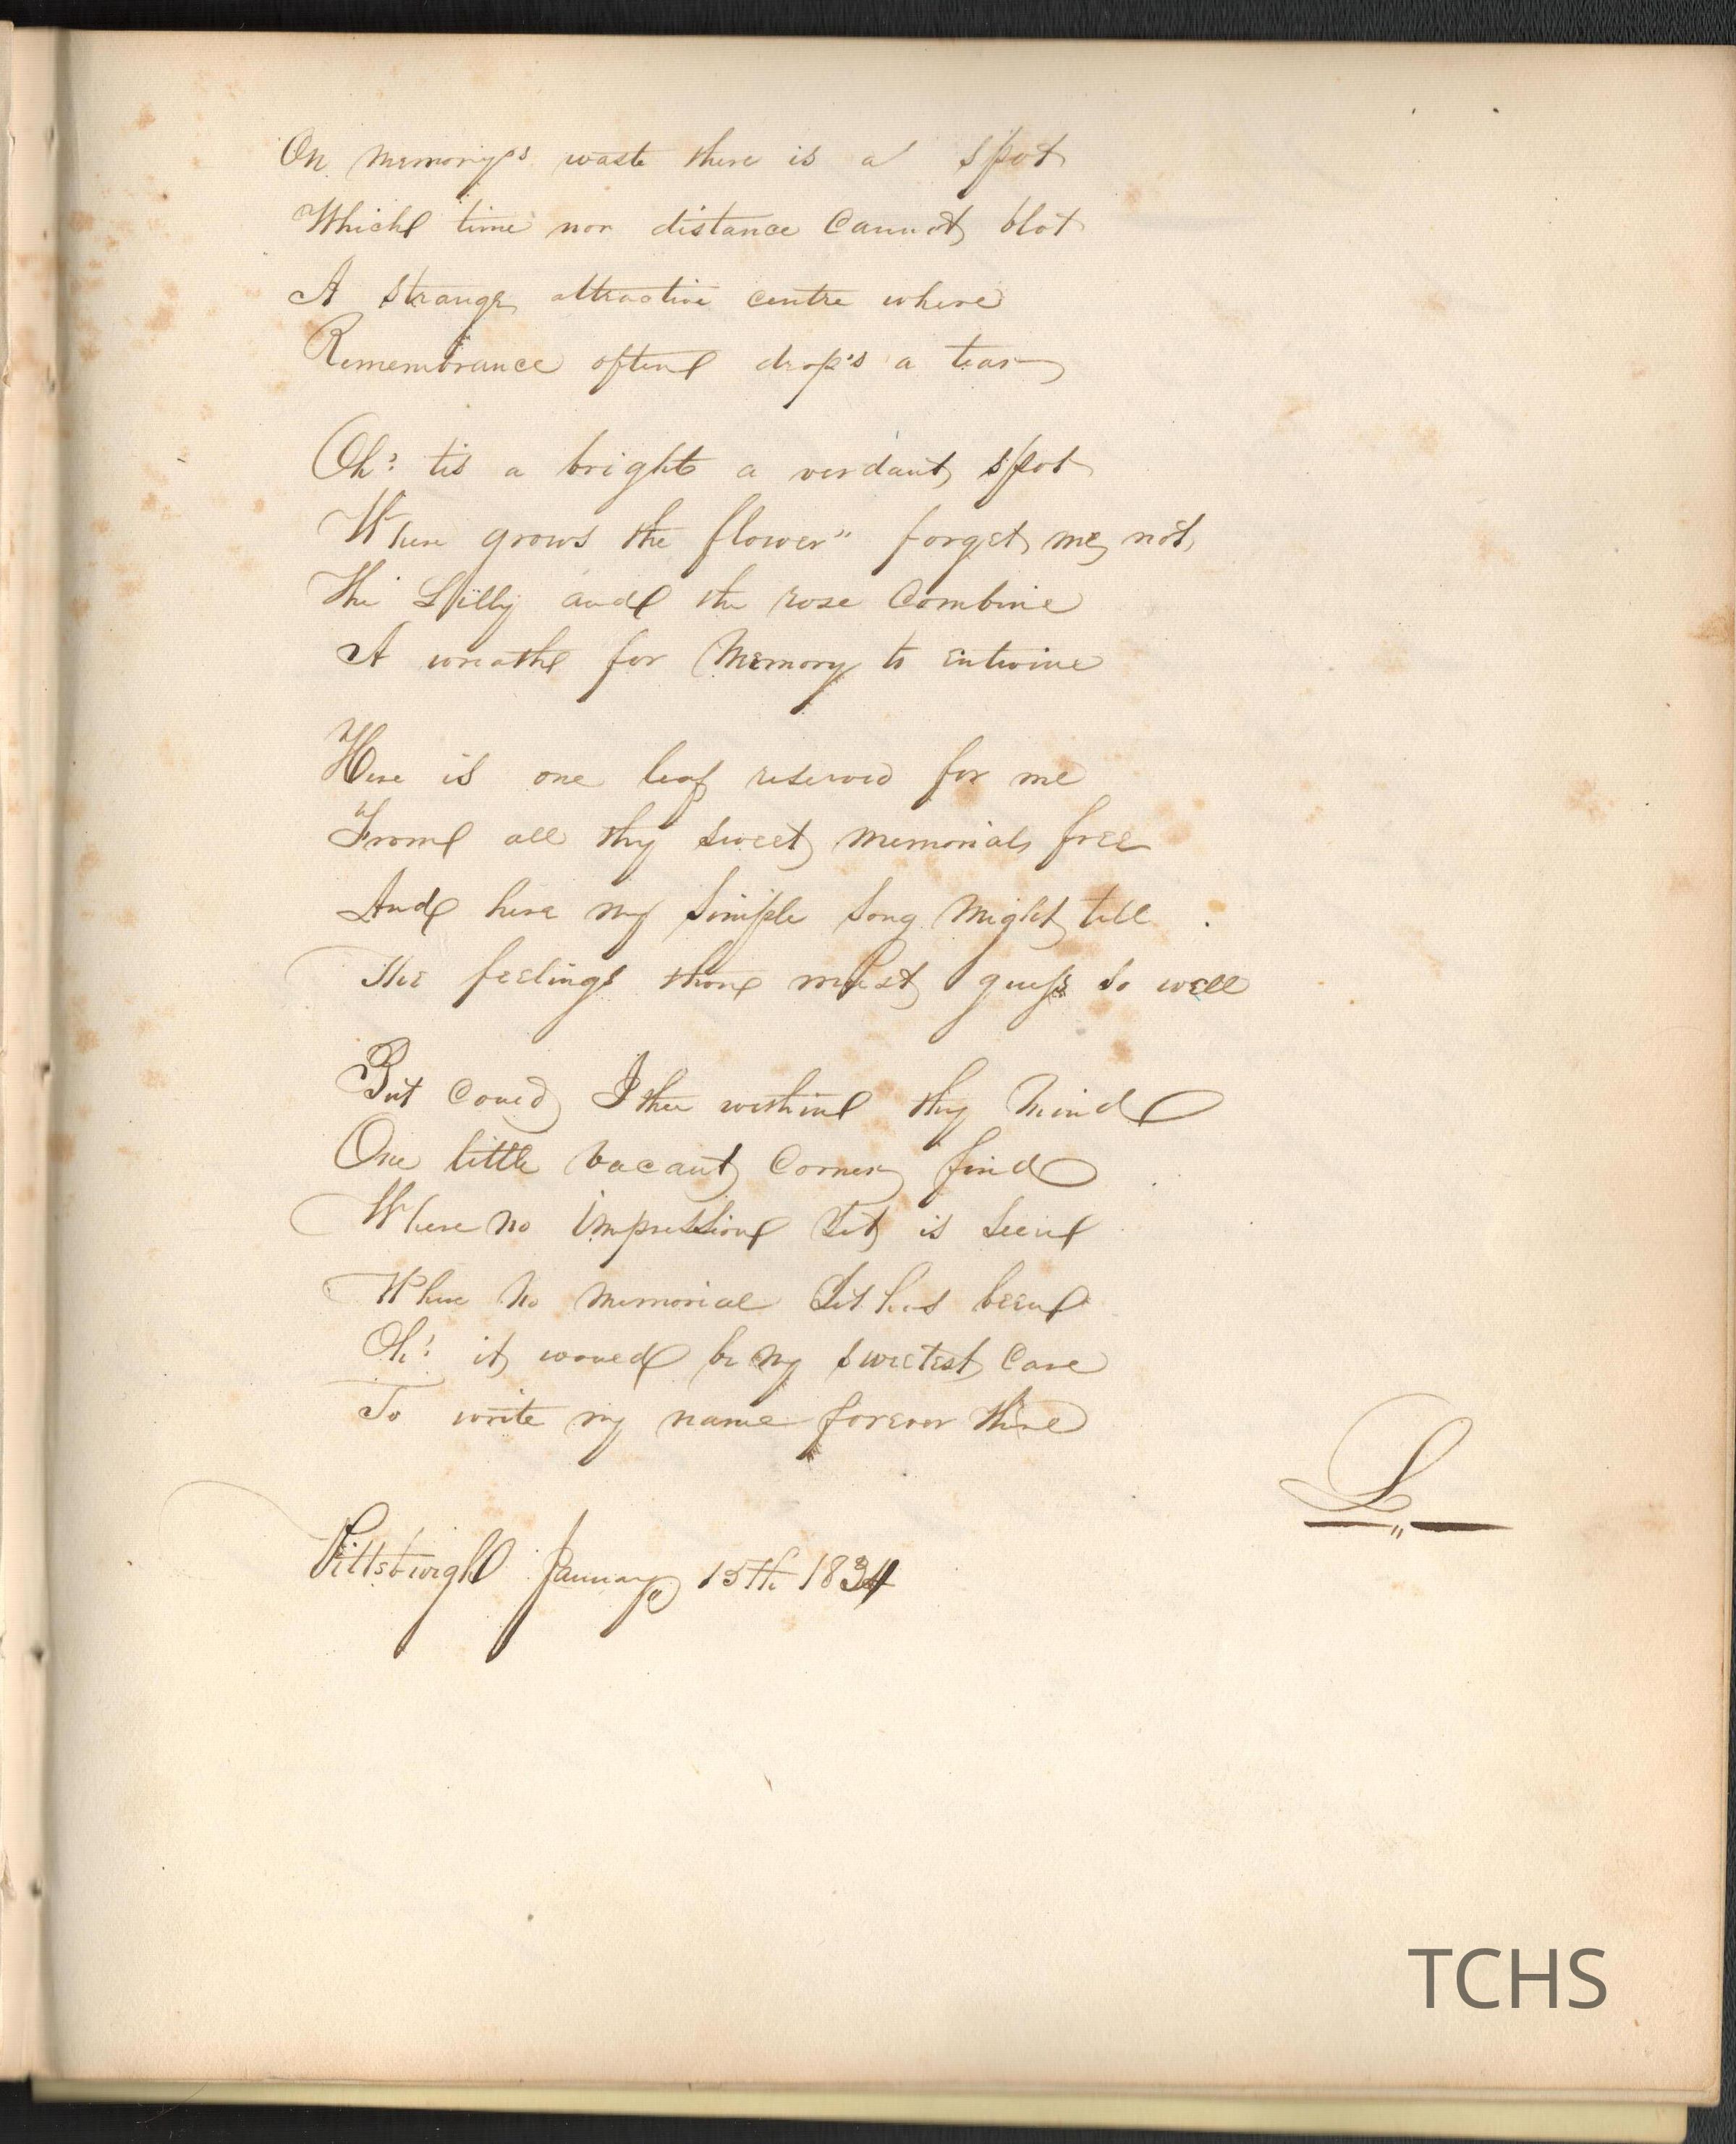 On memory's waste there is a spot
Which time nor distance Cannot blot
A strange attractive centre where
Remembrance often drop's a tear
Oh! tis a bright a verdant spot
Where grows the flower" forget me not
The Lilly and the rose Combine
A wreathe for Memory to entwine
Here is one leaf reserved for me
From all thy sweet memorials free
And here my simple song might tell
The feelings thou must guess so well
But Coued I thee within thy Mind
One little vacant Corner find
Where no impression Yet is seen
Where No memorial Yet has been
Oh! it woued be my sweetest Care
To write my name forever there
L
Pittsburgh January 15th 1834
TCHS